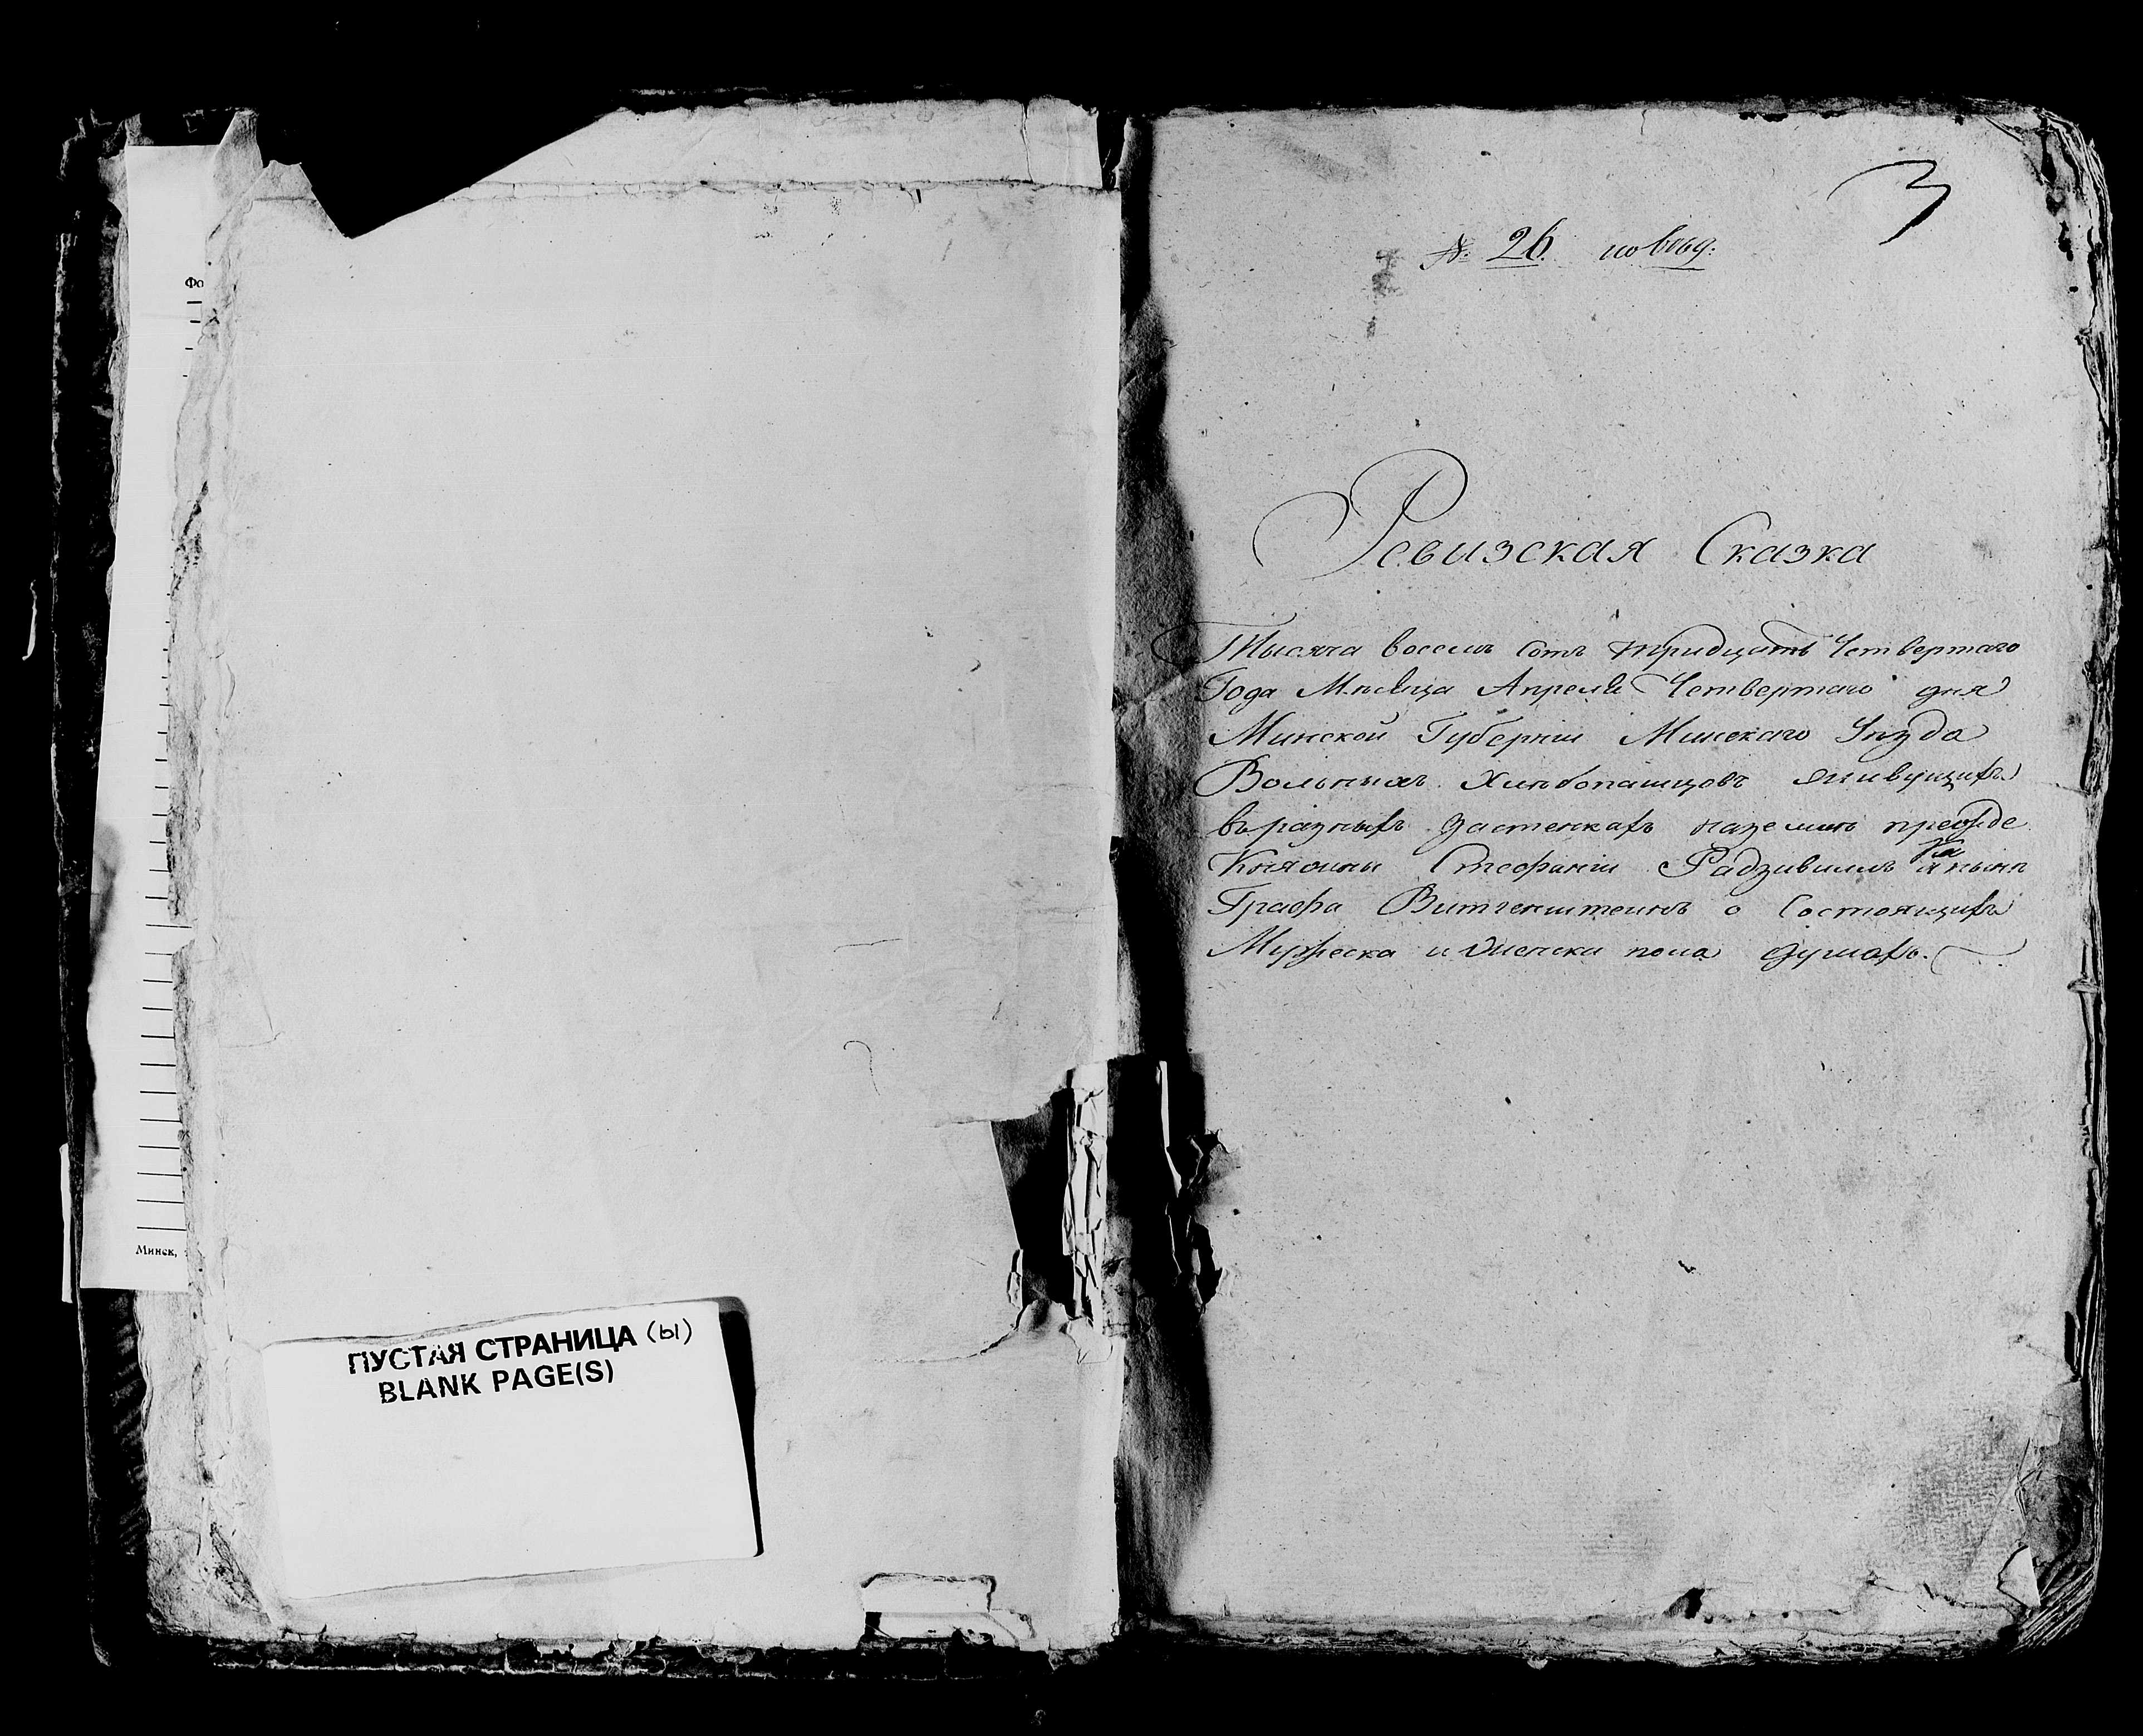 Фо
Минск,
ПУСТАЯ СТРАНИЦА (ы)
BLANK PAGE(S)
3
№. 26.
Ревизская Сказка
Тысяча восемь сотъ тридцать Четвертаго
Года Мѣсяца Апреля Четвертаго дня
Минской Губерніи Минскаго Уѣзда
Вольныхъ Хлѣбопашцовъ живущихъ
въ разныхъ Застенкахъ на землѣ прежде
Княжны Стефаніи Радзивилъ а нынѣ
Графа Витгенштеинъ о Состоящихъ
Мужеска и Женска пола душахъ.